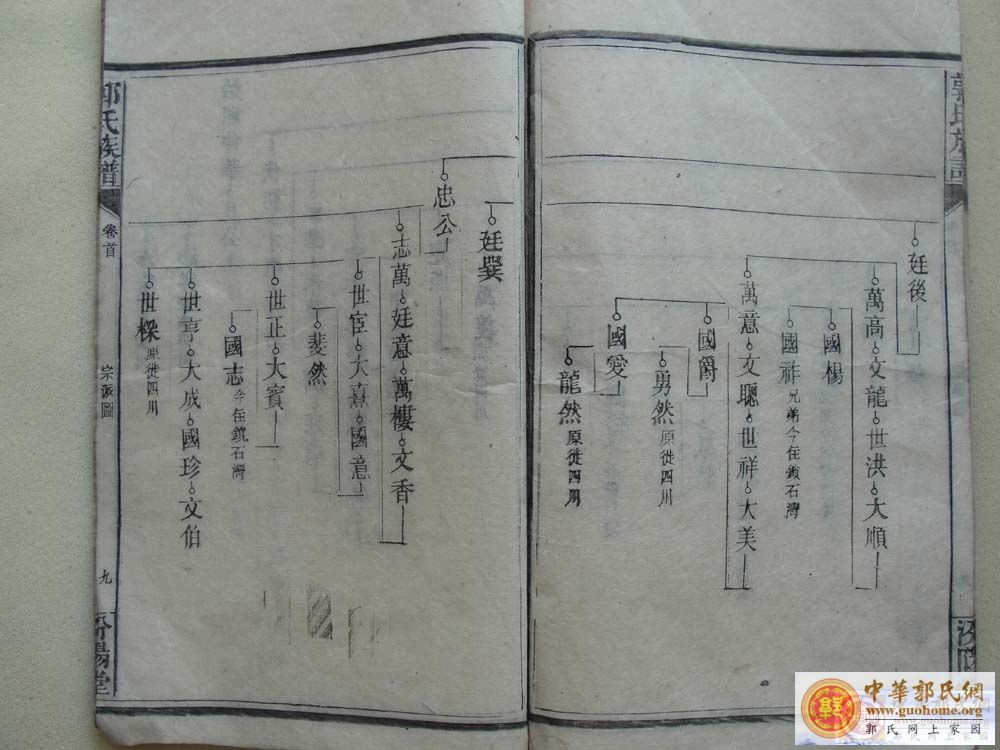 郭氏族譜
廷後
萬高文龍世洪大順
國楊
國祚兄弟今在鎮石灣
萬意文聰世祥大美
國爵
勇然原徙四川
國愛
龍然原徙四川
廷巽
忠公
志萬廷意萬樓文香
世宦大熹國意
斐然
世正大賓
國志今在鎮石灣
世亨大成國珍文伯
世樑原徙四川
郭氏族譜
卷首
宗派圖
九
汾陽堂
中華郭氏網
www.guohome.org
郭氏网上家园